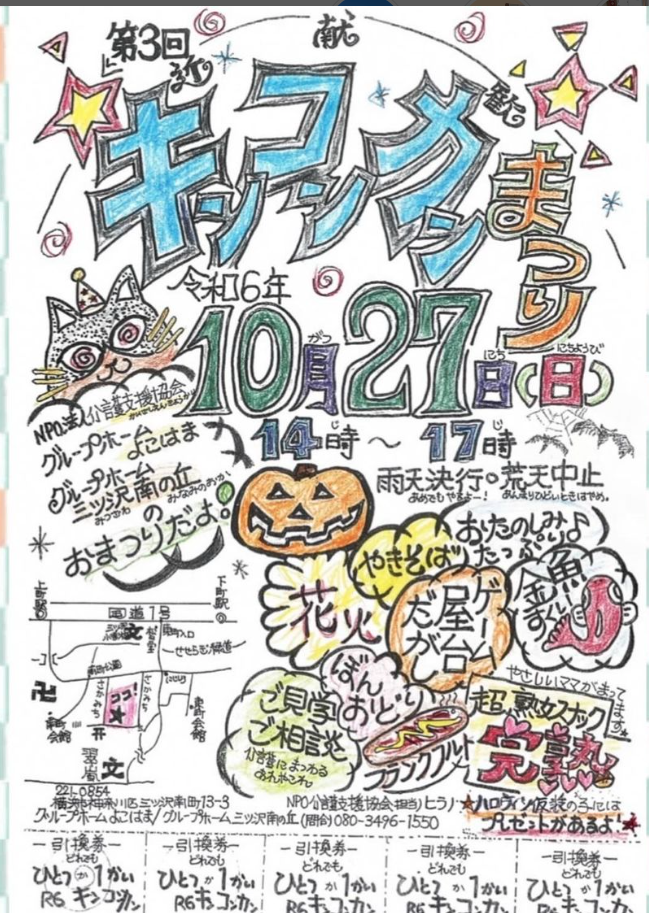 第3回
献
キンコンカン
まつり
令和6年
10月27日(日)
がつ
にち
にちようび
14時～17時
じ
じ
NPO法人介護支援協会
グループホーム
よこはま
グループホーム
三ツ沢南の丘
みつざわ みなみのおか
の
おまつりだよ。
雨天決行。荒天中止
あめでもやるよー! あんまりひどいときはやめ。
おたのしみ♪
たっぷり
やきそば
金魚すくい
花火
ゲーム
屋台
だがし
ぼん
おどり
ご見学
ご相談
介護にまつわる
あれやこれ
フランクフルト
やさしいママがまってます
超熟女スナック
完熟
国道1号
せせらぎ緑道
ココ!
東町会館
文
221-0854
横浜市神奈川区三ツ沢南町13-3
グループホームよこはま/グループホーム三ツ沢南の丘(問合)080-3496-1550
NPO介護支援協会(担当)ヒラノ
★ハロウィン仮装の子には
プレゼントがあるよ!★
引換券
どれでも
ひとつか1かい
R6 キンコンカン
引換券
どれでも
ひとつか1かい
R6キンコンカン
引換券
どれでも
ひとつか1かい
R6キンコンカン
引換券
どれでも
ひとつか1かい
R6キンコンカン
引換券
どれでも
ひとつか1かい
R6キンコンカン